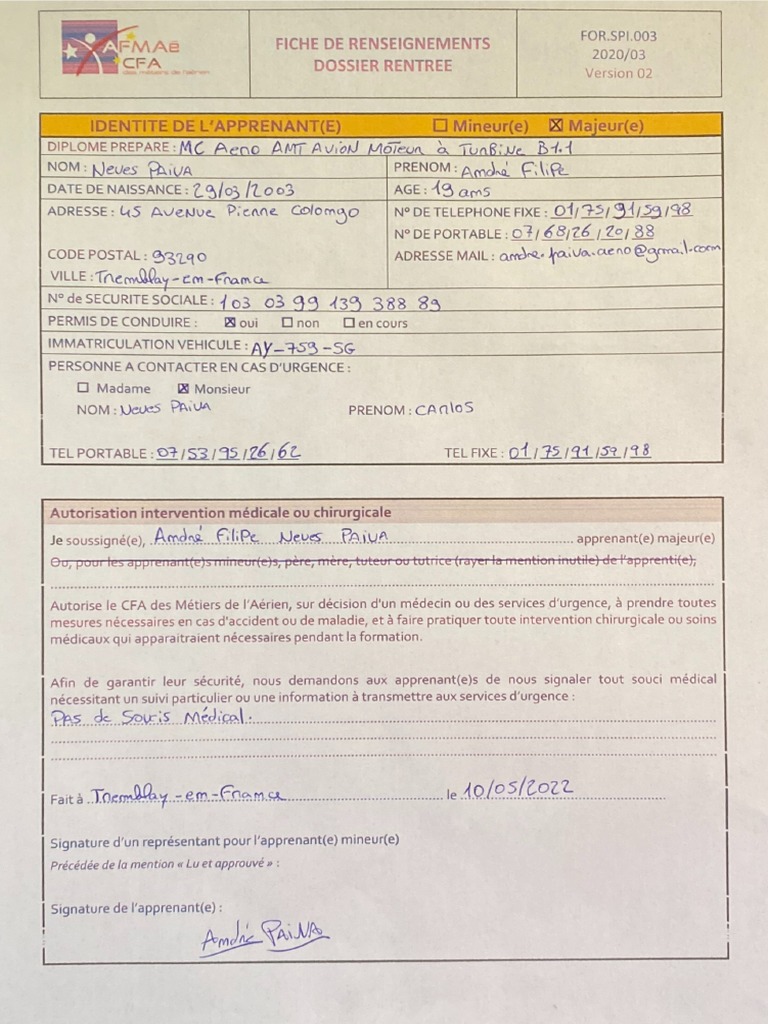 AFMAé
CFA
des métiers de l'aérien
FICHE DE RENSEIGNEMENTS
DOSSIER RENTREE
FOR.SPI.003
2020/03
Version 02
IDENTITE DE L'APPRENANT(E) ☐ Mineur(e) ☒ Majeur(e)
DIPLOME PREPARE : MC Aero AMT AVION MOTEUR à TURBINE B1.1
NOM : Neves PAIVA PRENOM : André Filipe
DATE DE NAISSANCE : 29/03/2003 AGE : 19 ans
ADRESSE : 45 Avenue Pierre Colongo N° DE TELEPHONE FIXE : 01/75/91/59/98
N° DE PORTABLE : 07/68/26/20/88
CODE POSTAL : 93290 ADRESSE MAIL : andre.paiva.aero@gmail.com
VILLE : Tremblay-en-France
N° de SECURITE SOCIALE : 1 03 03 99 139 388 89
PERMIS DE CONDUIRE : ☒ oui ☐ non ☐ en cours
IMMATRICULATION VEHICULE : AY-759-SG
PERSONNE A CONTACTER EN CAS D'URGENCE :
☐ Madame ☒ Monsieur
NOM : Neves PAIVA PRENOM : CARLOS
TEL PORTABLE : 07/53/95/26/62 TEL FIXE : 01/75/91/59/98
Autorisation intervention médicale ou chirurgicale
Je soussigné(e), André Filipe Neves PAIVA apprenant(e) majeur(e)
Ou, pour les apprenant(e)s mineur(e)s, père, mère, tuteur ou tutrice (rayer la mention inutile) de l'apprenti(e),
Autorise le CFA des Métiers de l'Aérien, sur décision d'un médecin ou des services d'urgence, à prendre toutes
mesures nécessaires en cas d'accident ou de maladie, et à faire pratiquer toute intervention chirurgicale ou soins
médicaux qui apparaitraient nécessaires pendant la formation.
Afin de garantir leur sécurité, nous demandons aux apprenant(e)s de nous signaler tout souci médical
nécessitant un suivi particulier ou une information à transmettre aux services d'urgence :
Pas de Souris Médical.
Fait à Tremblay-en-France le 10/05/2022
Signature d'un représentant pour l'apprenant(e) mineur(e)
Précédée de la mention « Lu et approuvé » :
Signature de l'apprenant(e) :
André PAIVA